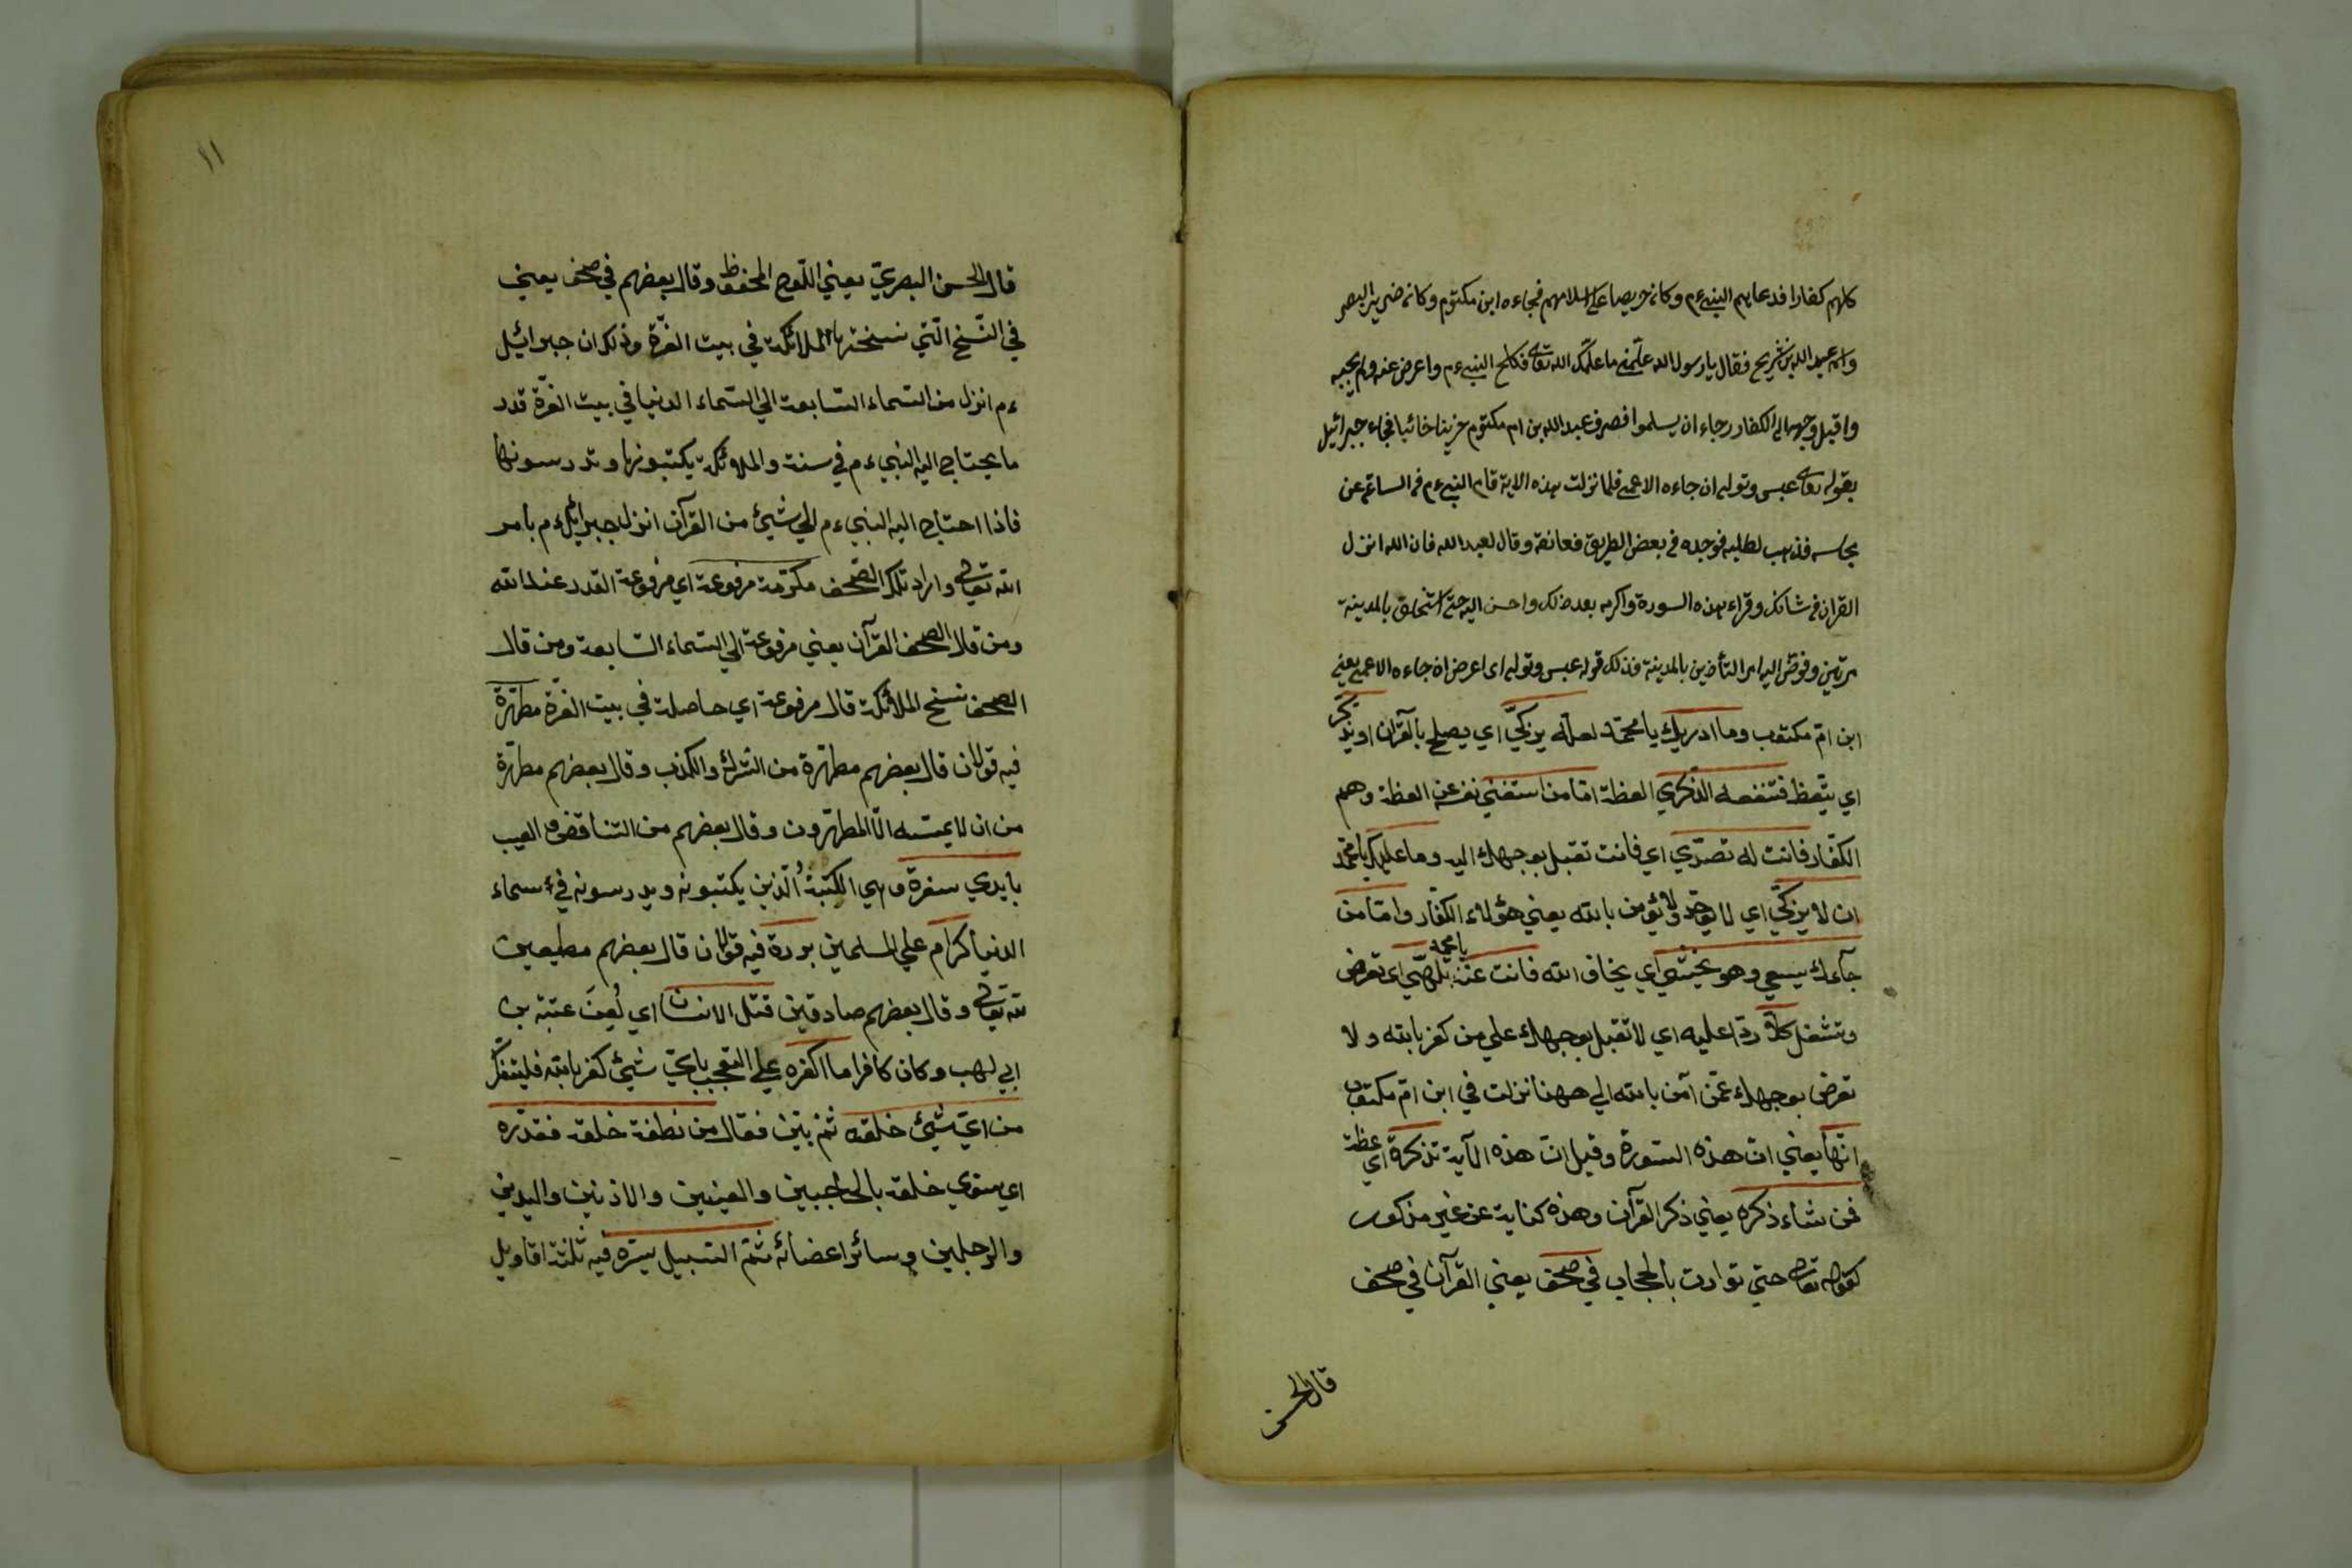 كلهم كفارا فدعاهم النبيءم وكان حريصا على اسلامهم فجاءه ابن مكتوم وكان ضرير البصر
واسمه عبد الله بن شريح فقال يا رسول الله علمني ما علمك الله تعالى فكلح النبيءم واعرض عنه ولم يجيبه
واقبل وجهه الى الكفار رجاء ان يسلموا فصرف عبد الله بن ام مكتوم حزينا خائبا فجاء جبرائيل
بقوله تعالى عبس وتولى ان جاءه الاعمى فلما نزلت هذه الاية قام النبيءم فى الساعة عن
مجلسه فذهب لطلبه فوجده فى بعض الطريق فعانقه وقال لعبد الله فان الله انزل
القران فى شانك وقراء هذه السورة واكرمه بعد ذلك واحسن اليه حتى استخلف بالمدينة
مرتين وفوض اليه امر التأذين بالمدينة فذلك قوله عبس وتولى اى اعرض ان جاءه الاعمى يعنى
ابن امّ مكتوب وما ادريك يا محمّد لعلّه يزكّيّ اي يصلح بالقرآن او يذّكّر
اي يتّعظ فتنفعه الذّكري العظة امّا من استغني نفسه عن العظة وهم
الكفّار فانت له تصدّي اي فانت تقبل بوجهك اليه وما عليك يا محمّد
ان لا يزكّيّ اي لا يوحّد ولا يؤمن بالله يعني هؤلاء الكفّار وامّا من
جآءك يسعي وهو يخشي اي يخاف الله فانت عنه يا محمد تلهّي اي تعرض
وتشغل كلّا ردّا عليه اي لا تقبل بوجهك علي من كفر بالله ولا
تعرض بوجهك عمّن آمن بالله الي ههنا نزلت في ابن امّ مكتوب
انّها يعني انّ هذه السّورة وقيل انّ هذه الآية تذكرة اي عظة
فمن شاء ذكره يعني ذكر القرآن وهذه كناية عن غير مذكور
كقوله تعالى حتي توارت بالحجاب في صحف يعني القرآن في صحف
قال الحسن
١١
قال الحسن البصريّ يعني اللّوح المحفوظ وقال بعضهم في صحف يعني
في النّسخ الّتي نسختها الملائكة في بيت العزّة وذلك ان جبرائيل
ءم انزل من السّماء السّابعة الي السّماء الدنيا في بيت العزّة قدر
ما يحتاج اليه النبيءم في سنة والملائكة يكتبونها وتدرسونها
فاذا احتاج اليه النبيءم الي شيئ من القرآن انزل جبرائيلءم بامر
الله تعالى واراد تلك الصّحف مكرّمة مرفوعة اي مرفوعة القدر عند الله
ومن قال الصحف القرآن يعني مرفوعة الي السّماء السّابعة ومن قال
الصحف نسخ الملائكة قال مرفوعة اي حاصلة في بيت العزّة مطهّرة
فيه قولان قال بعضهم مطهّرة من الشرك والكذب وقال بعضهم مطهّرة
من ان لا يمسّه الّا المطهّرون وقال بعضهم من التناقض والعيب
بايدي سفرة وهي الكتبة الّذين يكتبونه ويدرسونه في سماء
الدنيا كرام علي المسلمين بررة فيه قولان قال بعضهم مطيعين
لله تعالى وقال بعضهم صادقين قتل الانسان اي لُعِنَ عتبة بن
ابي لهب وكان كافرا ما اكفره علي التعجّب بايّ شيئ كفر بالله فليتفكّر
من ايّ شيئ خلقه ثم بيّن فقال من نطفة خلقه فقدّره
اي سوّي خلقه بالحاجبين والعينين والاذنين واليدين
والرجلين وسائر اعضائه ثمّ السّبيل يسّره فيه ثلثة اقاويل